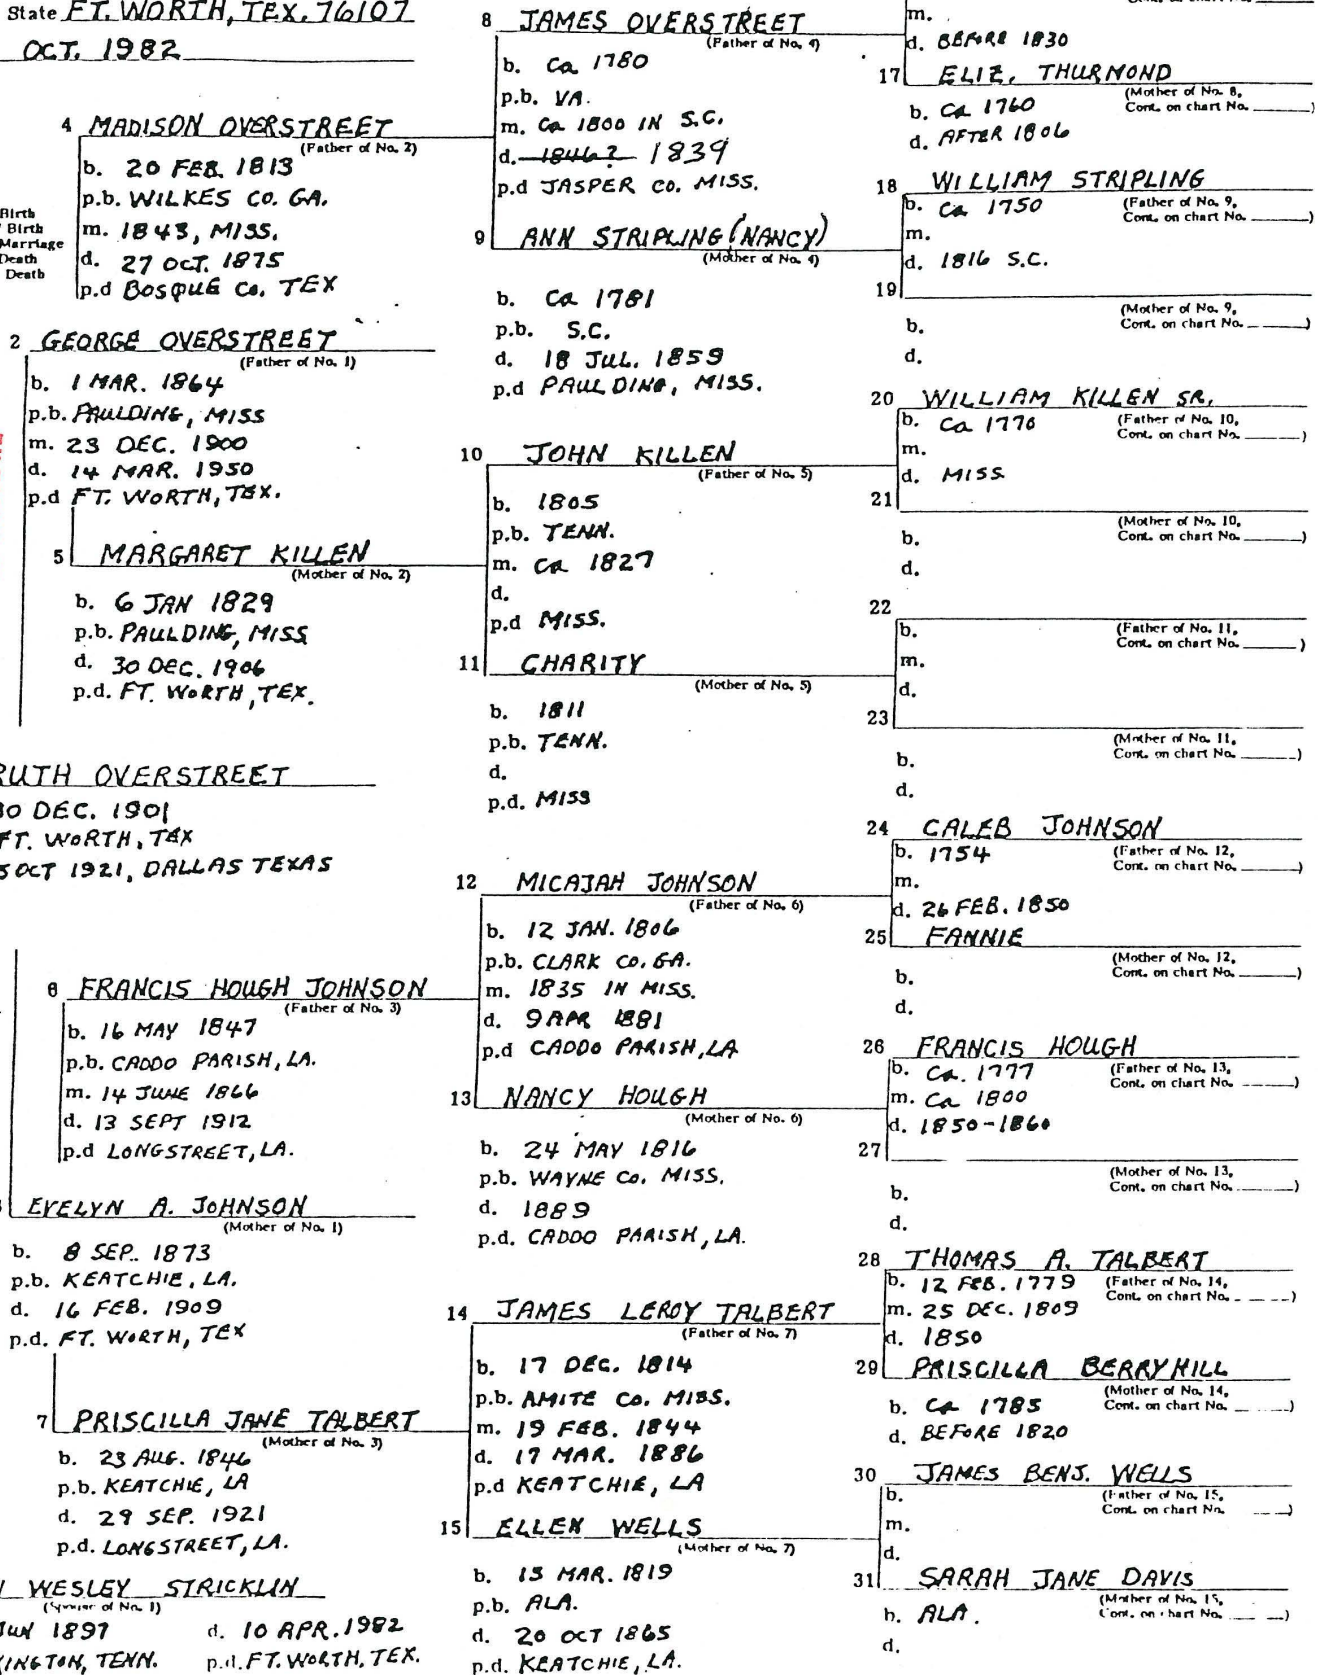 State FT. WORTH, TEX. 76107
OCT. 1982
4 MADISON OVERSTREET
(Father of No. 2)
b. 20 FEB. 1813
p.b. WILKES CO. GA.
m. 1843, MISS.
d. 27 OCT. 1875
p.d BOSQUE CO. TEX
Birth
Birth
Marriage
Death
Death
2 GEORGE OVERSTREET
(Father of No. 1)
b. 1 MAR. 1864
p.b. PAULDING, MISS
m. 23 DEC. 1900
d. 14 MAR. 1950
p.d FT. WORTH, TEX.
5 MARGARET KILLEN
(Mother of No. 2)
b. 6 JAN 1829
p.b. PAULDING, MISS
d. 30 DEC. 1906
p.d. FT. WORTH, TEX.
RUTH OVERSTREET
30 DEC. 1901
FT. WORTH, TEX
OCT 1921, DALLAS TEXAS
6 FRANCIS HOUGH JOHNSON
(Father of No. 3)
b. 16 MAY 1847
p.b. CADDO PARISH, LA.
m. 14 JUNE 1866
d. 13 SEPT 1912
p.d LONGSTREET, LA.
EVELYN A. JOHNSON
(Mother of No. 1)
b. 8 SEP. 1873
p.b. KEATCHIE, LA.
d. 16 FEB. 1909
p.d. FT. WORTH, TEX
7 PRISCILLA JANE TALBERT
(Mother of No. 3)
b. 23 AUG. 1846
p.b. KEATCHIE, LA
d. 29 SEP. 1921
p.d. LONGSTREET, LA.
WESLEY STRICKLIN
(Spouse of No. 1)
JUN 1897 d. 10 APR. 1982
KINGTON, TENN. p.d. FT. WORTH, TEX.
8 JAMES OVERSTREET
(Father of No. 4)
b. Ca 1780
p.b. VA.
m. Ca 1800 IN S.C.
d. 1846? 1839
p.d JASPER CO. MISS.
9 ANN STRIPLING (NANCY)
(Mother of No. 4)
b. Ca 1781
p.b. S.C.
d. 18 JUL. 1859
p.d PAULDING, MISS.
10 JOHN KILLEN
(Father of No. 5)
b. 1805
p.b. TENN.
m. Ca 1827
d.
p.d MISS.
11 CHARITY
(Mother of No. 5)
b. 1811
p.b. TENN.
d.
p.d. MISS
12 MICAJAH JOHNSON
(Father of No. 6)
b. 12 JAN. 1806
p.b. CLARK CO. GA.
m. 1835 IN MISS.
d. 9 APR 1881
p.d CADDO PARISH, LA
13 NANCY HOUGH
(Mother of No. 6)
b. 24 MAY 1816
p.b. WAYNE CO. MISS.
d. 1889
p.d. CADDO PARISH, LA.
14 JAMES LEROY TALBERT
(Father of No. 7)
b. 17 DEC. 1814
p.b. AMITE CO. MISS.
m. 19 FEB. 1844
d. 17 MAR. 1886
p.d KEATCHIE, LA
15 ELLEN WELLS
(Mother of No. 7)
b. 13 MAR. 1819
p.b. ALA.
d. 20 OCT 1865
p.d. KEATCHIE, LA.
m.
d. BEFORE 1830
17 ELIZ. THURMOND
(Mother of No. 8,
Cont. on chart No. ____)
b. Ca 1760
d. AFTER 1806
18 WILLIAM STRIPLING
b. Ca 1750 (Father of No. 9,
Cont. on chart No. ____)
m.
d. 1816 S.C.
19
(Mother of No. 9,
Cont. on chart No. ____)
b.
d.
20 WILLIAM KILLEN SR.
b. Ca 1770 (Father of No. 10,
Cont. on chart No. ____)
m.
d. MISS
21
(Mother of No. 10,
Cont. on chart No. ____)
b.
d.
22
b. (Father of No. 11,
Cont. on chart No. ____)
m.
d.
23
(Mother of No. 11,
Cont. on chart No. ____)
b.
d.
24 CALEB JOHNSON
b. 1754 (Father of No. 12,
Cont. on chart No. ____)
m.
d. 26 FEB. 1850
25 FANNIE
(Mother of No. 12,
Cont. on chart No. ____)
b.
d.
26 FRANCIS HOUGH
b. Ca. 1777 (Father of No. 13,
Cont. on chart No. ____)
m. Ca 1800
d. 1850-1860
27
(Mother of No. 13,
Cont. on chart No. ____)
b.
d.
28 THOMAS A. TALBERT
b. 12 FEB. 1779 (Father of No. 14,
Cont. on chart No. ____)
m. 25 DEC. 1809
d. 1850
29 PRISCILLA BERRYHILL
(Mother of No. 14,
Cont. on chart No. ____)
b. Ca 1785
d. BEFORE 1820
30 JAMES BENJ. WELLS
b. (Father of No. 15,
Cont. on chart No. ____)
m.
d.
31 SARAH JANE DAVIS
(Mother of No. 15,
Cont. on chart No. ____)
b. ALA.
d.